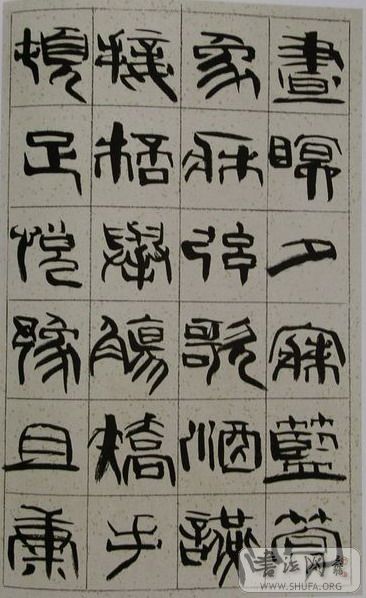 晝瞑夕寐藍筍
象床弦歌酒讌
接桮舉觴矯手
頓足悅豫且康
書法网
WWW.SHUFA.ORG